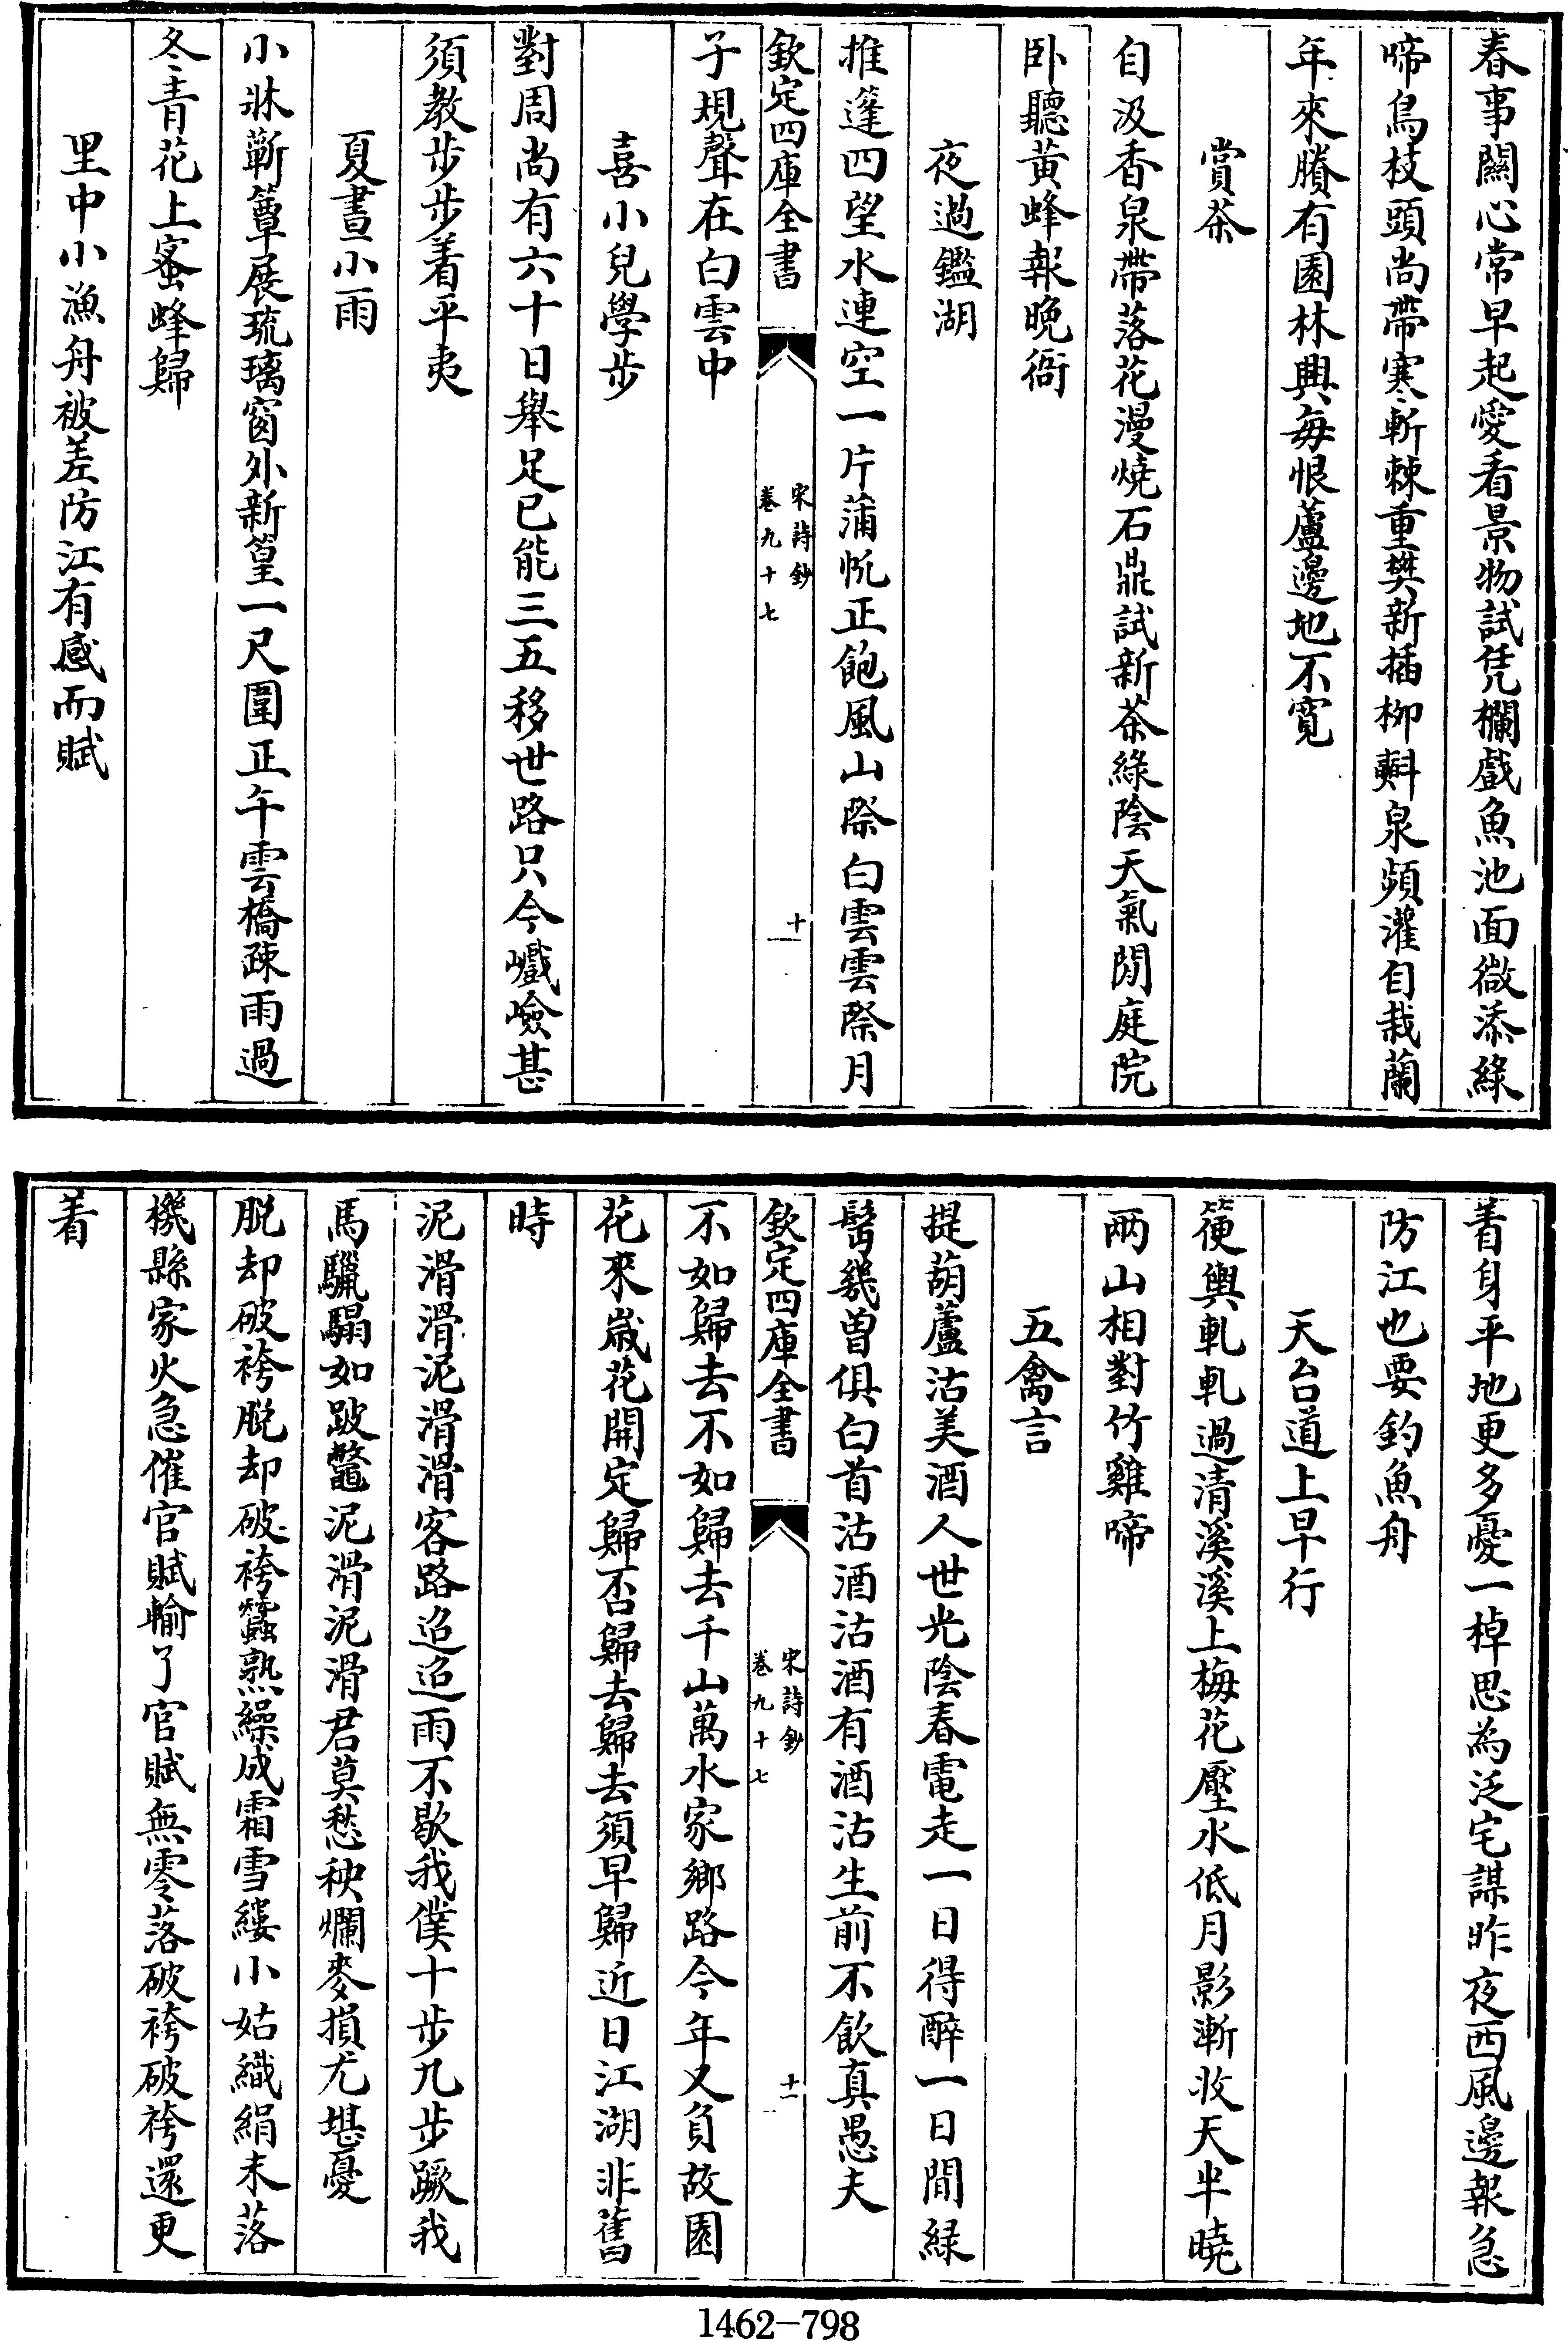 春事關心常早起愛看景物試凭欄戲魚池面微添綠
啼鳥枝頭尚帶寒斬棘重樊新插柳㪺泉頻灌自栽蘭
年來賸有園林興每恨蘆邊地不寬
賞茶
自汲香泉帶落花漫燒石鼎試新茶綠陰天氣閒庭院
卧聽黃蜂報晚衙
夜過鑑湖
推篷四望水連空一片蒲帆正飽風山際白雲雲際月
欽定四庫全書
宋詩鈔
卷九十七
十
子規聲在白雲中
喜小兒學步
對周尚有六十日舉足已能三五移世路只今巇嶮甚
須教步步着平夷
夏晝小雨
小牀蘄簟展琉璃窗外新篁一尺圍正午雲橋疎雨過
冬青花上蜜蜂歸
里中小漁舟被差防江有感而賦
着身平地更多憂一棹思為泛宅謀昨夜西風邊報急
防江也要釣魚舟
天台道上早行
箯輿軋軋過清溪溪上梅花壓水低月影漸收天半曉
兩山相對竹雞啼
五禽言
提葫蘆沽美酒人世光陰春電走一日得醉一日閒綠
髩幾曽俱白首沽酒沽酒有酒沽生前不飲真愚夫
欽定四庫全書
宋詩鈔
卷九十七
十一
不如歸去不如歸去千山萬水家鄉路今年又負故園
花來嵗花開定歸否歸去歸去須早歸近日江湖非舊
時
泥滑滑泥滑滑客路迢迢雨不歇我僕十步九步蹶我
馬驪騧如跛鼈泥滑泥滑君莫愁秧爛麥損尤堪憂
脱却破袴脱却破袴蠶熟繰成霜雪縷小姑織絹未落
機縣家火急催官賦輸了官賦無零落破袴破袴還更
着
1462-798